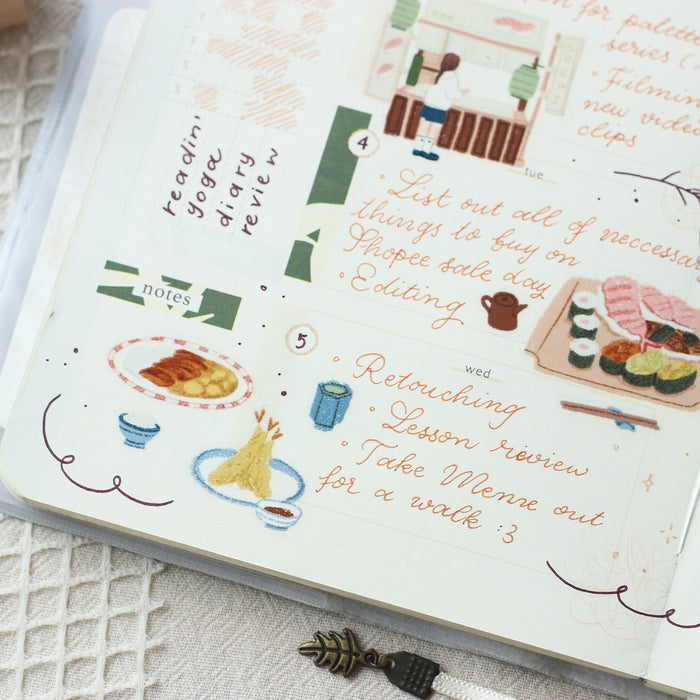 for palette
series (
• Filming
new video
clips
T
F
S
S
readin'
yoga
diary
review
4
tue
• List out all of neccessar
things to buy on
Shopee sale day
• Editing
notes
5
wed
• Retouching
• Lesson review
• Take Meme out
for a walk :3